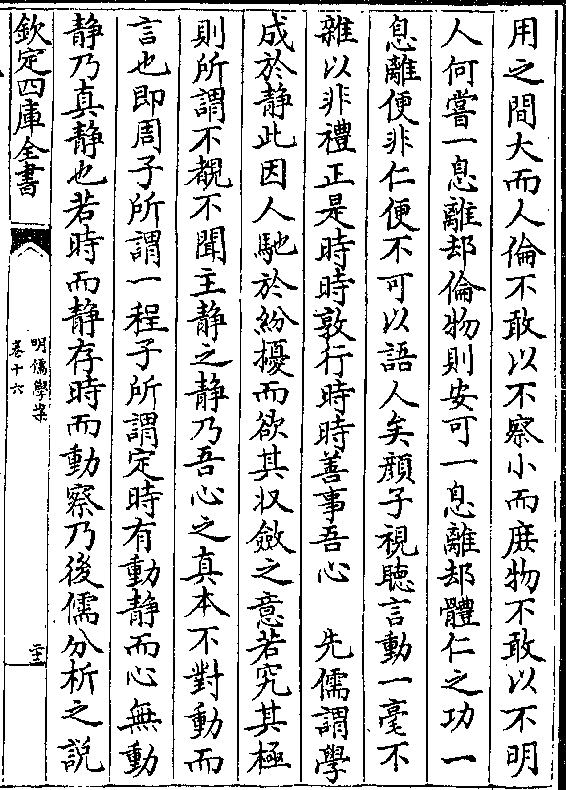 用之間大而人倫不敢以不察小而庶物不敢以不明
人何嘗一息離却倫物則安可一息離却體仁之功一
息離便非仁便不可以語人矣顔子視聽言動一毫不
雜以非禮正是時時敦行時時善事吾心　先儒謂學
成於静此因人馳於紛擾而欲其収斂之意若究其極
則所謂不覩不聞主静之静乃吾心之真本不對動而
言也即周子所謂一程子所謂定時有動静而心無動
静乃真静也若時而静存時而動察乃後儒分析之説
欽定四庫全書
明儒學案
卷十六
二十三